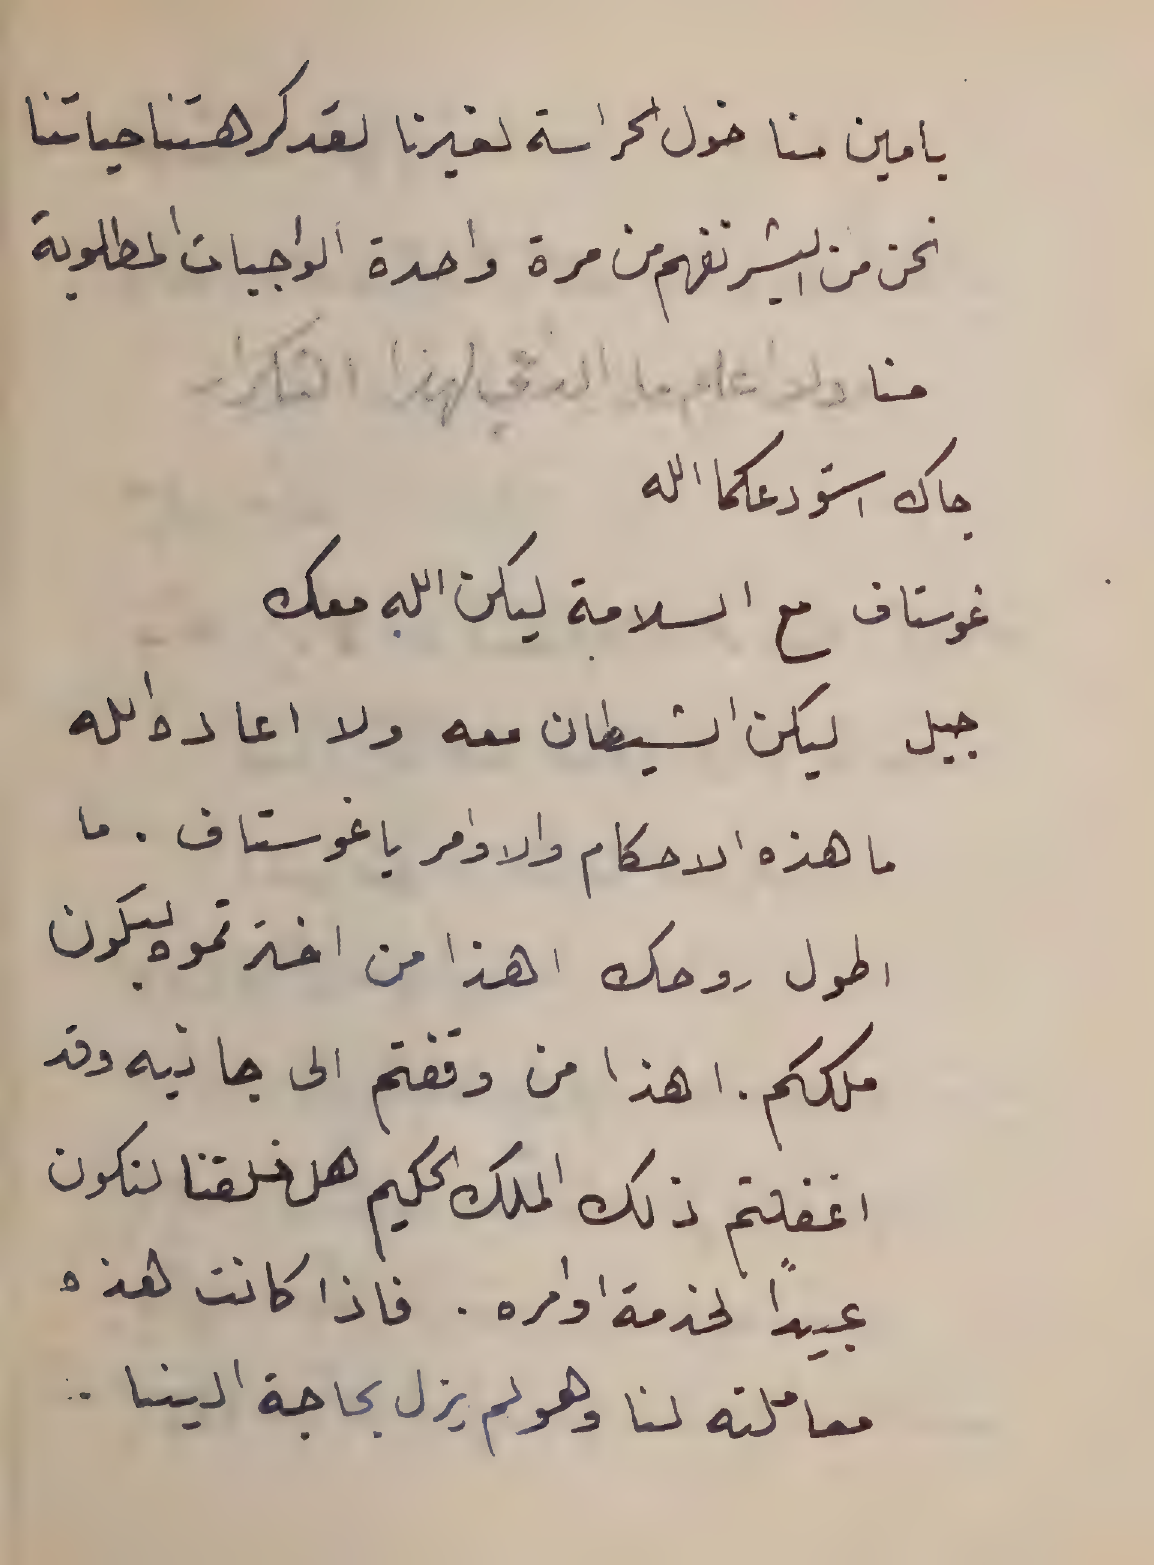 يامين منا خول الحراسة لغيرنا لقد كرهتنا حياتنا
نحن من البشر نفهم من مرة واحدة الواجبات المطلوبة
منا ولا اعلم ما الداعي لهذا التكرار
جاك استودعكما الله
غوستاف مع السلامة ليكن الله معك
جيل ليكن الشيطان معه ولا اعاده الله
ما هذه الاحكام والاوامر يا غوستاف . ما
اطول روحك اهذا من اخترتموه ليكون
ملككم . اهذا من وقفتم الى جانبه وقد
اغفلتم ذلك الملك الحكيم هل خلقنا لنكون
عبيداً لخدمة اوامره . فاذا كانت هذه
معاملته لنا وهو لم يزل بحاجة الينا ..